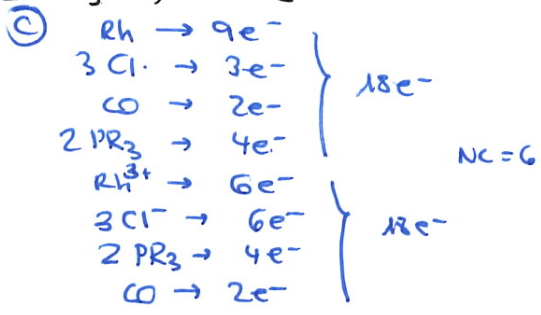 C
Rh → 9e⁻
3 Cl· → 3e⁻
CO → 2e⁻
2 PR₃ → 4e⁻
18e⁻
NC = 6
Rh³⁺ → 6e⁻
3 Cl⁻ → 6e⁻
2 PR₃ → 4e⁻
CO → 2e⁻
18e⁻